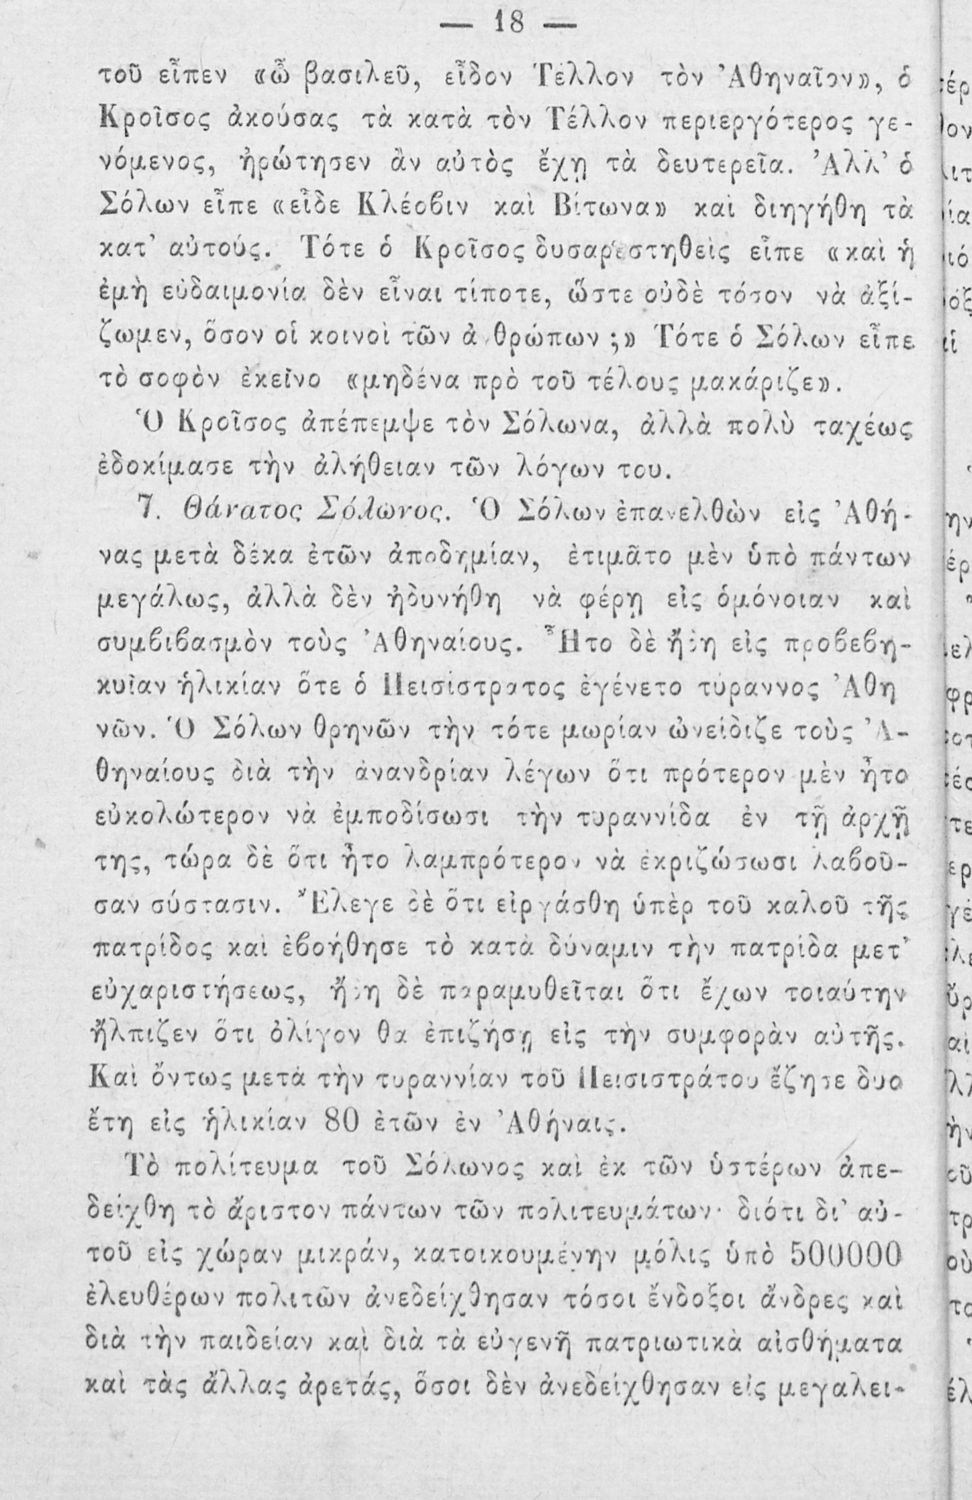 — 18 —
τοῦ εἶπεν «ὦ βασιλεῦ, εἶδον Τέλλον τὸν Ἀθηναῖον», ὁ
Κροῖσος ἀκούσας τὰ κατὰ τὸν Τέλλον περιεργότερος γε-
νόμενος, ἠρώτησεν ἂν αὐτὸς ἔχῃ τὰ δευτερεῖα. Ἀλλ' ὁ
Σόλων εἶπε «εἶδε Κλέοβιν καὶ Βίτωνα» καὶ διηγήθη τὰ
κατ' αὐτούς. Τότε ὁ Κροῖσος δυσαρεστηθεὶς εἶπε «καὶ ἡ
ἐμὴ εὐδαιμονία δὲν εἶναι τίποτε, ὥστε οὐδὲ τόσον νὰ ἀξί-
ζωμεν, ὅσον οἱ κοινοὶ τῶν ἀ θρώπων ;» Τότε ὁ Σόλων εἶπε
τὸ σοφὸν ἐκεῖνο «μηδένα πρὸ τοῦ τέλους μακάριζε».
Ὁ Κροῖσος ἀπέπεμψε τὸν Σόλωνα, ἀλλὰ πολὺ ταχέως
ἐδοκίμασε τὴν ἀλήθειαν τῶν λόγων του.
7. Θάνατος Σόλωνος. Ὁ Σόλων ἐπανελθὼν εἰς Ἀθή-
νας μετὰ δέκα ἐτῶν ἀποδημίαν, ἐτιμᾶτο μὲν ὑπὸ πάντων
μεγάλως, ἀλλὰ δὲν ἠδυνήθη νὰ φέρῃ εἰς ὁμόνοιαν καὶ
συμβιβασμὸν τοὺς Ἀθηναίους. Ἦτο δὲ ἤδη εἰς προβεβη-
κυῖαν ἡλικίαν ὅτε ὁ Πεισίστρατος ἐγένετο τύραννος Ἀθη
νῶν. Ὁ Σόλων θρηνῶν τὴν τότε μωρίαν ὠνείδιζε τοὺς Ἀ-
θηναίους διὰ τὴν ἀνανδρίαν λέγων ὅτι πρότερον μὲν ἦτο
εὐκολώτερον νὰ ἐμποδίσωσι τὴν τυραννίδα ἐν τῇ ἀρχῇ
της, τώρα δὲ ὅτι ἦτο λαμπρότερον νὰ ἐκριζώσωσι λαβοῦ-
σαν σύστασιν. Ἔλεγε δὲ ὅτι εἰργάσθη ὑπὲρ τοῦ καλοῦ τῆς
πατρίδος καὶ ἐβοήθησε τὸ κατὰ δύναμιν τὴν πατρίδα μετ'
εὐχαριστήσεως, ἤδη δὲ παραμυθεῖται ὅτι ἔχων τοιαύτην
ἤλπιζεν ὅτι ὀλίγον θὰ ἐπιζήσῃ εἰς τὴν συμφορὰν αὐτῆς.
Καὶ ὄντως μετὰ τὴν τυραννίαν τοῦ Πεισιστράτου ἔζησε δυο
ἔτη εἰς ἡλικίαν 80 ἐτῶν ἐν Ἀθήναις.
Τὸ πολίτευμα τοῦ Σόλωνος καὶ ἐκ τῶν ὑστέρων ἀπε-
δείχθη τὸ ἄριστον πάντων τῶν πολιτευμάτων· διότι δι' αὐ-
τοῦ εἰς χώραν μικράν, κατοικουμένην μόλις ὑπὸ 500000
ἐλευθέρων πολιτῶν ἀνεδείχθησαν τόσοι ἔνδοξοι ἄνδρες καὶ
διὰ τὴν παιδείαν καὶ διὰ τὰ εὐγενῆ πατριωτικὰ αἰσθήματα
καὶ τὰς ἄλλας ἀρετάς, ὅσοι δὲν ἀνεδείχθησαν εἰς μεγαλει-